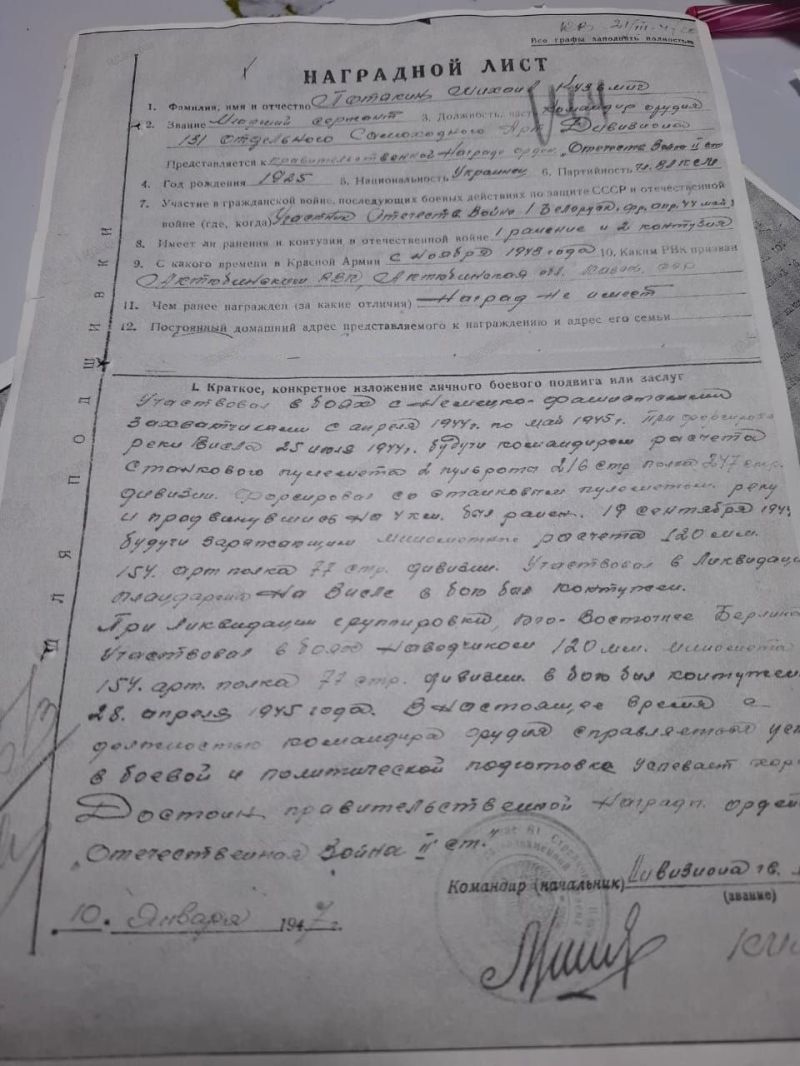 Все графы заполнять полностью
НАГРАДНОЙ ЛИСТ
1. Фамилия, имя и отчество Потакин Михаил Кузьмич
2. Звание Младший сержант 3. Должность, часть Командир орудия
131 Отдельного Самоходного Арт. Дивизиона
Представляется к правительственной Награде орден „Отечеств. Война II ст
4. Год рождения 1925 5. Национальность Украинец 6. Партийность чл. ВЛКСМ
7. Участие в гражданской войне, последующих боевых действиях по защите СССР и отечественной
войне (где, когда) Участник Отечеств Война 1 Белорус. фр. апр. 44 май
8. Имеет ли ранения и контузии в отечественной войне 1 ранение и 2 контузия
9. С какого времени в Красной Армии с Ноября 1943 года 10. Каким РВК призван
Актюбинским РВК, Актюбинская обл.
11. Чем ранее награжден (за какие отличия) Наград не имеет
12. Постоянный домашний адрес представляемого к награждению и адрес его семьи
ДЛЯ ПОДШИВКИ
I. Краткое, конкретное изложение личного боевого подвига или заслуг
Участвовал в боях с Немецко-фашистскими
захватчиками с апреля 1944 г. по май 1945 г. При форсиров
реки Висла 25 июля 1944 г. будучи командиром расчета
Станкового пулемета 2 пульрота 216 стр. полка 247 стр.
дивизии. Форсировал со станковым пулеметом реку
и продвинувшись на 4 км. был ранен. 19 сентября 194
будучи заряжающим минометного расчета 120 мм.
154. арт полка 77 стр. дивизии. Участвовал в Ликвидаци
плацдарма На Висле в бою был контужен.
При Ликвидации группировки, Юго-Восточнее Берлина
Участвовал в боях наводчиком 120 мм. миномета
154. арт. полка 77 стр. дивизии. в бою был контужен.
28. апреля 1945 года. В Настоящее время с
должностью командира орудия справляется усп
в боевой и политической подготовке успевает хор
Достоин правительственной Награды орде
„Отечественная Война II ст."
Командир (начальник) Дивизиона гв.
(звание)
10. Января 1947 г.